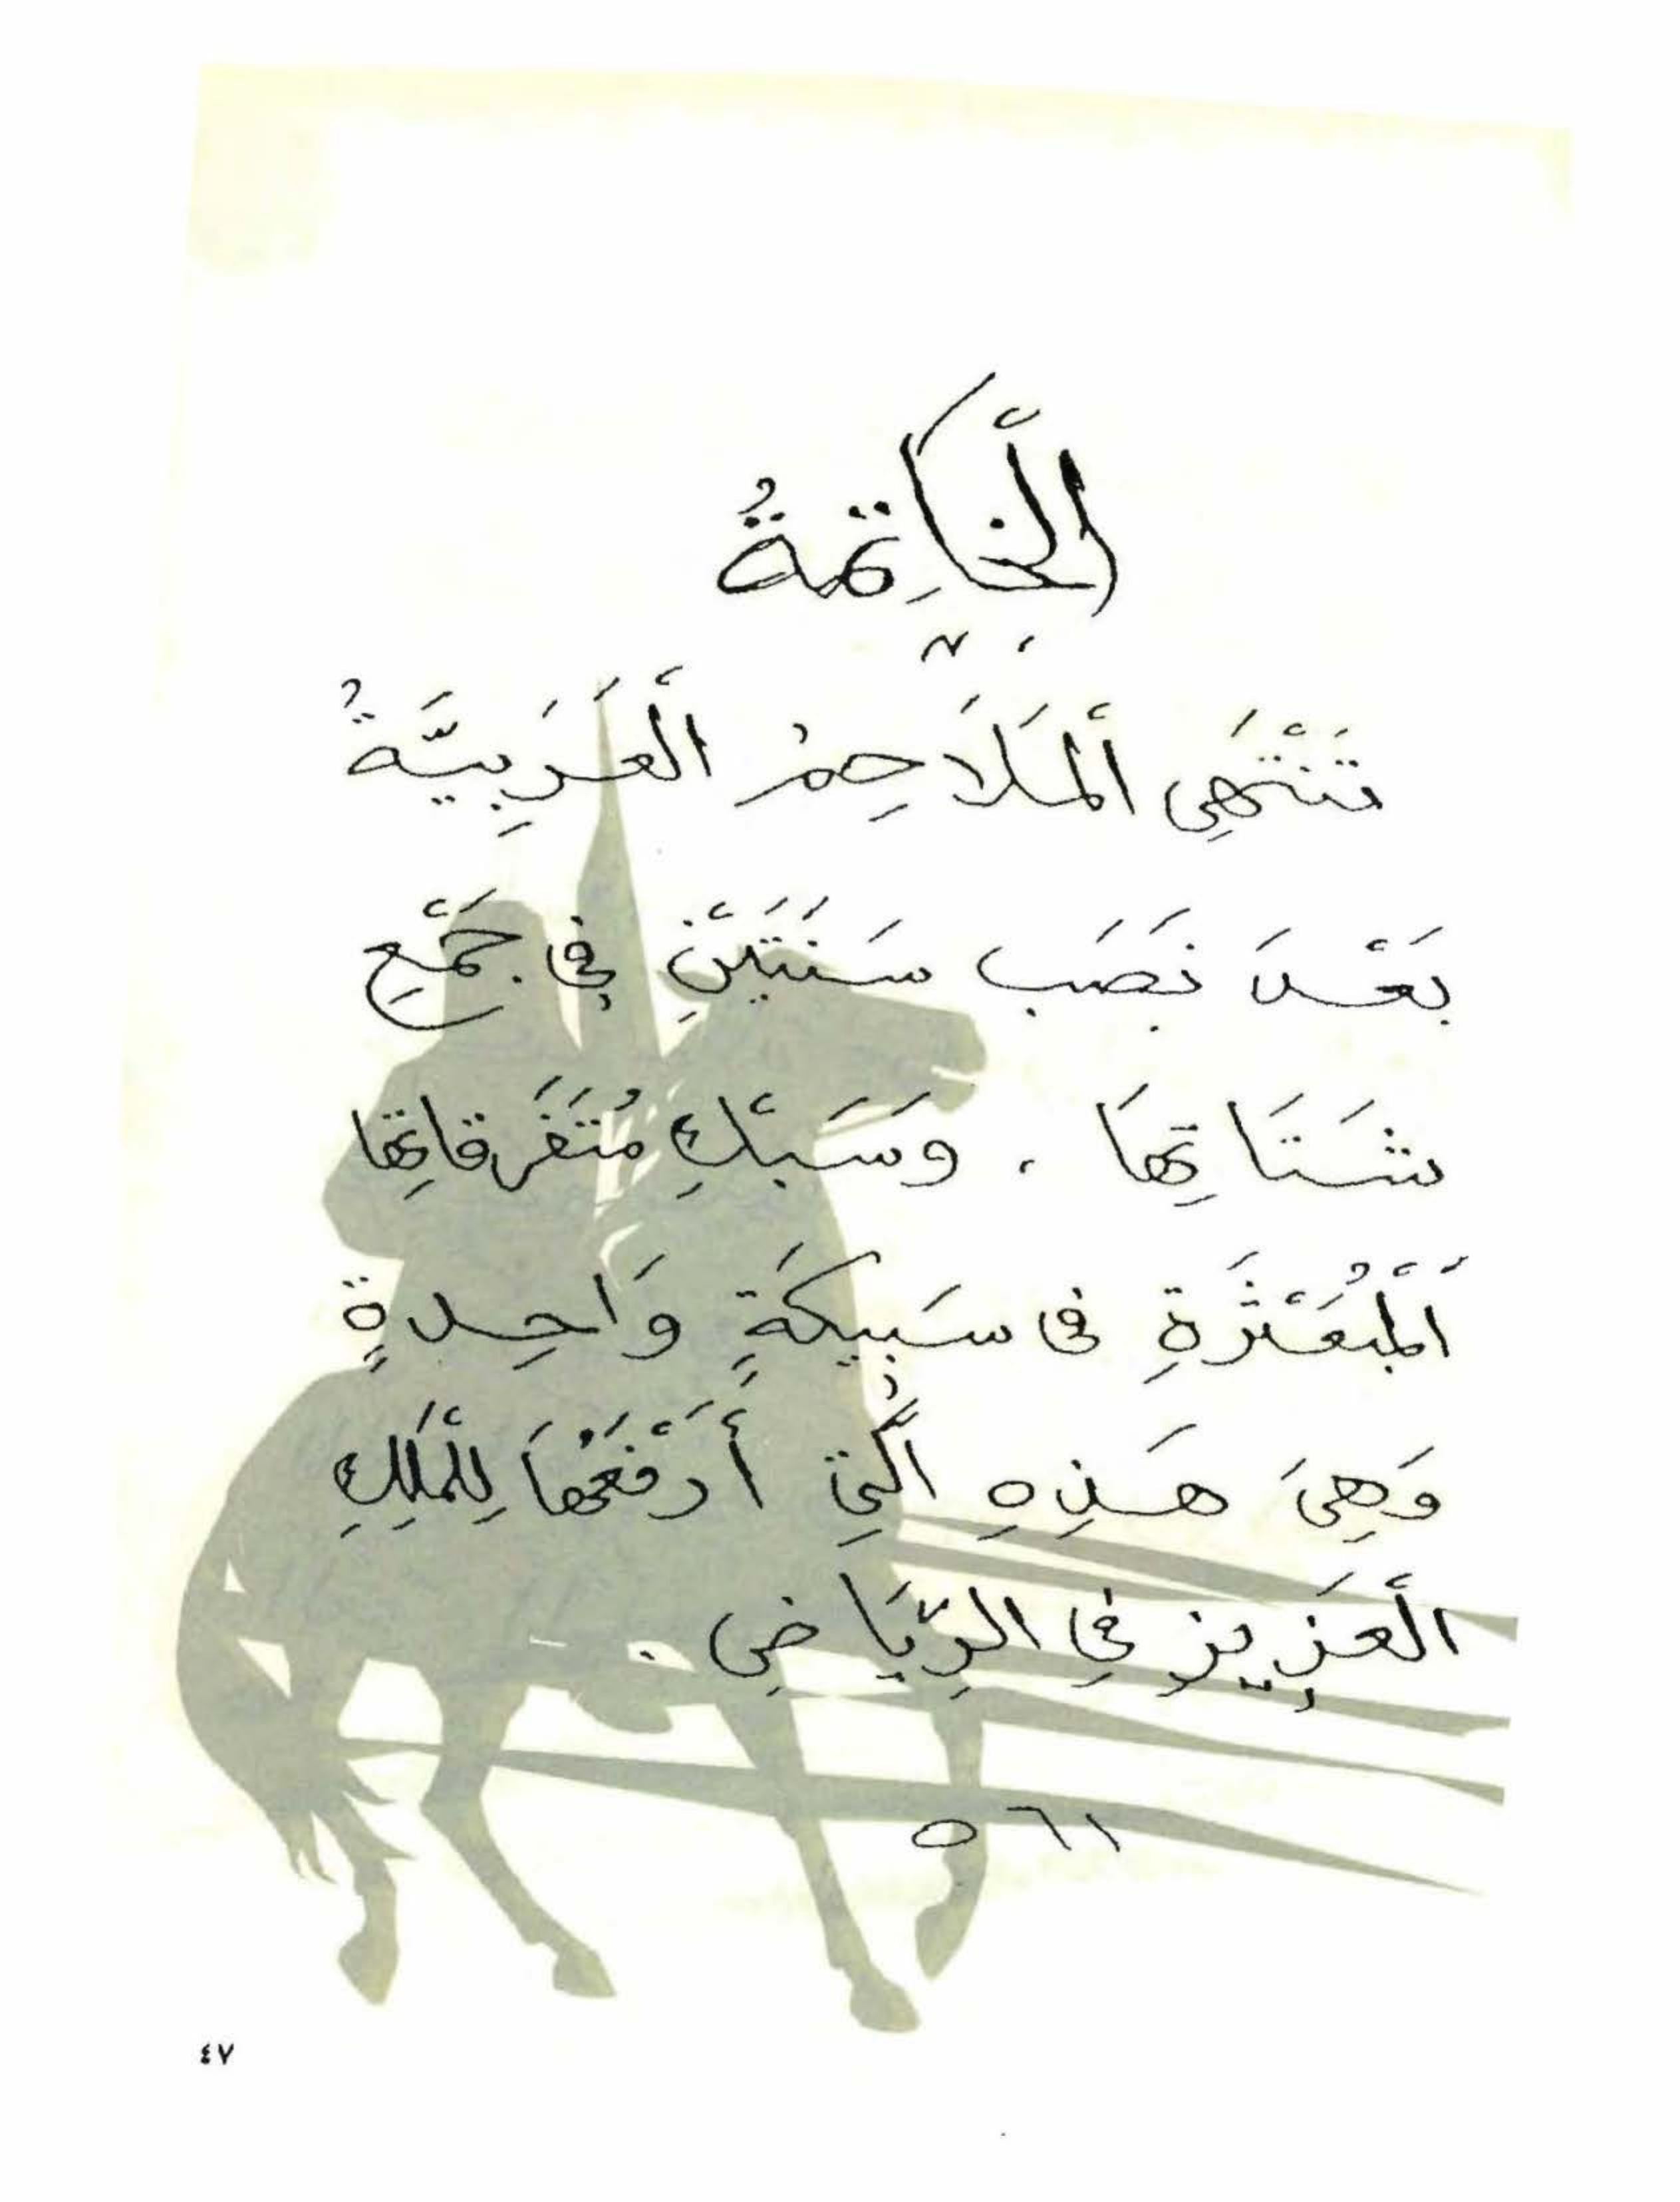 الْخَاتِمَةُ
تَنْتَهِى أَلْمَلَاحِمُ الْعَرَبِيَّةُ
بَعْدَ نَصَب سَنَتَيْنِ فِى جَمْعِ
شَتَاتِهَا ، وَسَبْكِ مُتَفَرقاتِها
اَلْمُبَعْثَرَةِ فى سَبِيكَةٍ وَاحِدةٍ
وَهِىَ هَذِهِ الَّتِى أَرْفَعُهَا لِلْمَلِكِ
الْعَزِيزِ فِى الرِّيَاضِ .
٥٦١
٤٧